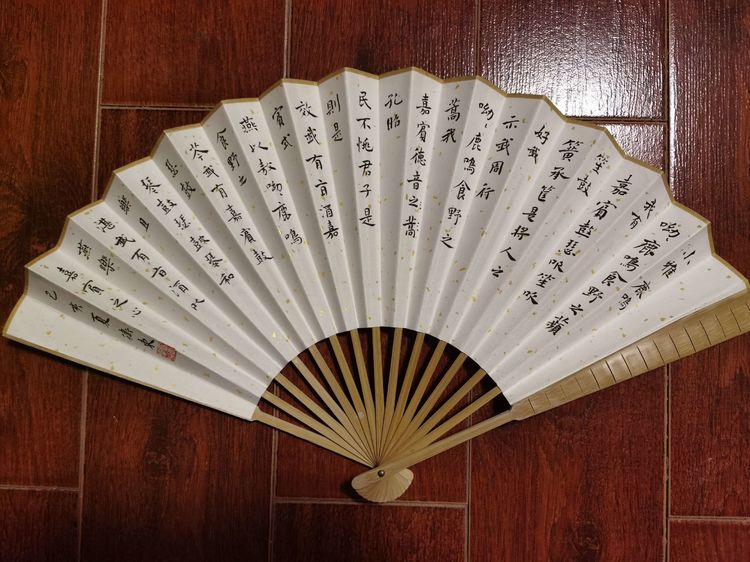 小雅 鹿鳴
呦〻鹿鳴食野之蘋
我有
嘉賓鼓瑟吹笙吹
笙鼓
簧承筐是將人之
好我
示我周行
呦〻鹿鳴食野之
蒿我
嘉賓德音之蒿
孔昭
民不恌君子是
則是
效我有旨酒嘉
賓式
燕以敖呦鹿鳴
食野之
芩我有嘉賓鼓
瑟鼓
琴鼓瑟鼓琴和
樂且
湛我有旨酒以
燕樂
嘉賓之心
己亥夏